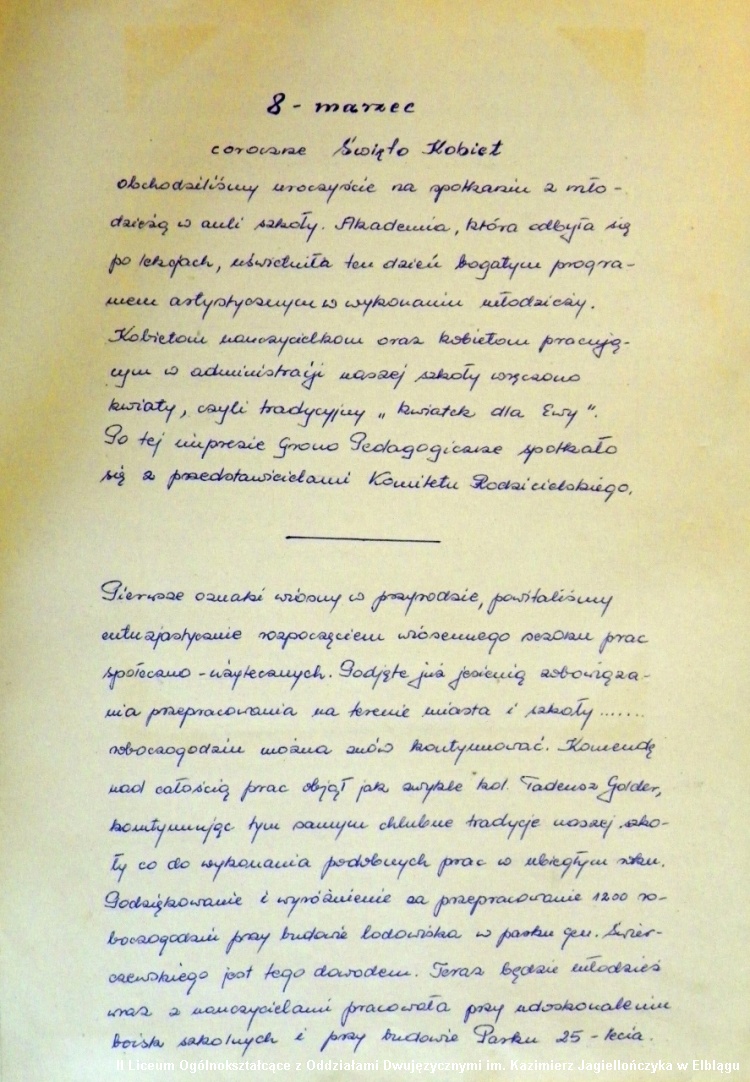 8 - marzec
coroczne Święto Kobiet
obchodziliśmy uroczyście na spotkaniu z mło-
dzieżą w auli szkoły. Akademia, która odbyła się
po lekcjach, uświetniła ten dzień bogatym progra-
mem artystycznym w wykonaniu młodzieży.
Kobietom nauczycielkom oraz kobietom pracują-
cym w administracji naszej szkoły wręczono
kwiaty, czyli tradycyjny „kwiatek dla Ewy".
Po tej imprezie Grono Pedagogiczne spotkało
się z przedstawicielami Komitetu Rodzicielskiego.
Pierwsze oznaki wiosny w przyrodzie, powitaliśmy
entuzjastycznie rozpoczęciem wiosennego sezonu prac
społeczno-użytecznych. Podjęte już jesienią zobowiąza-
nia przepracowania na terenie miasta i szkoły.......
roboczogodzin można znów kontynuować. Komendę
nad całością prac objął jak zwykle kol. Tadeusz Golder,
kontynuując tym samym chlubne tradycje naszej szko-
ły co do wykonania podobnych prac w ubiegłym roku.
Podziękowanie i wyróżnienie za przepracowanie 1200 ro-
boczogodzin przy budowie lodowiska w parku gen. Świer-
czewskiego jest tego dowodem. Teraz będzie młodzież
wraz z nauczycielami pracowała przy udoskonaleniu
boisk szkolnych i przy budowie Parku 25-lecia.
II Liceum Ogólnokształcące z Oddziałami Dwujęzycznymi im. Kazimierz Jagiellończyka w Elblągu